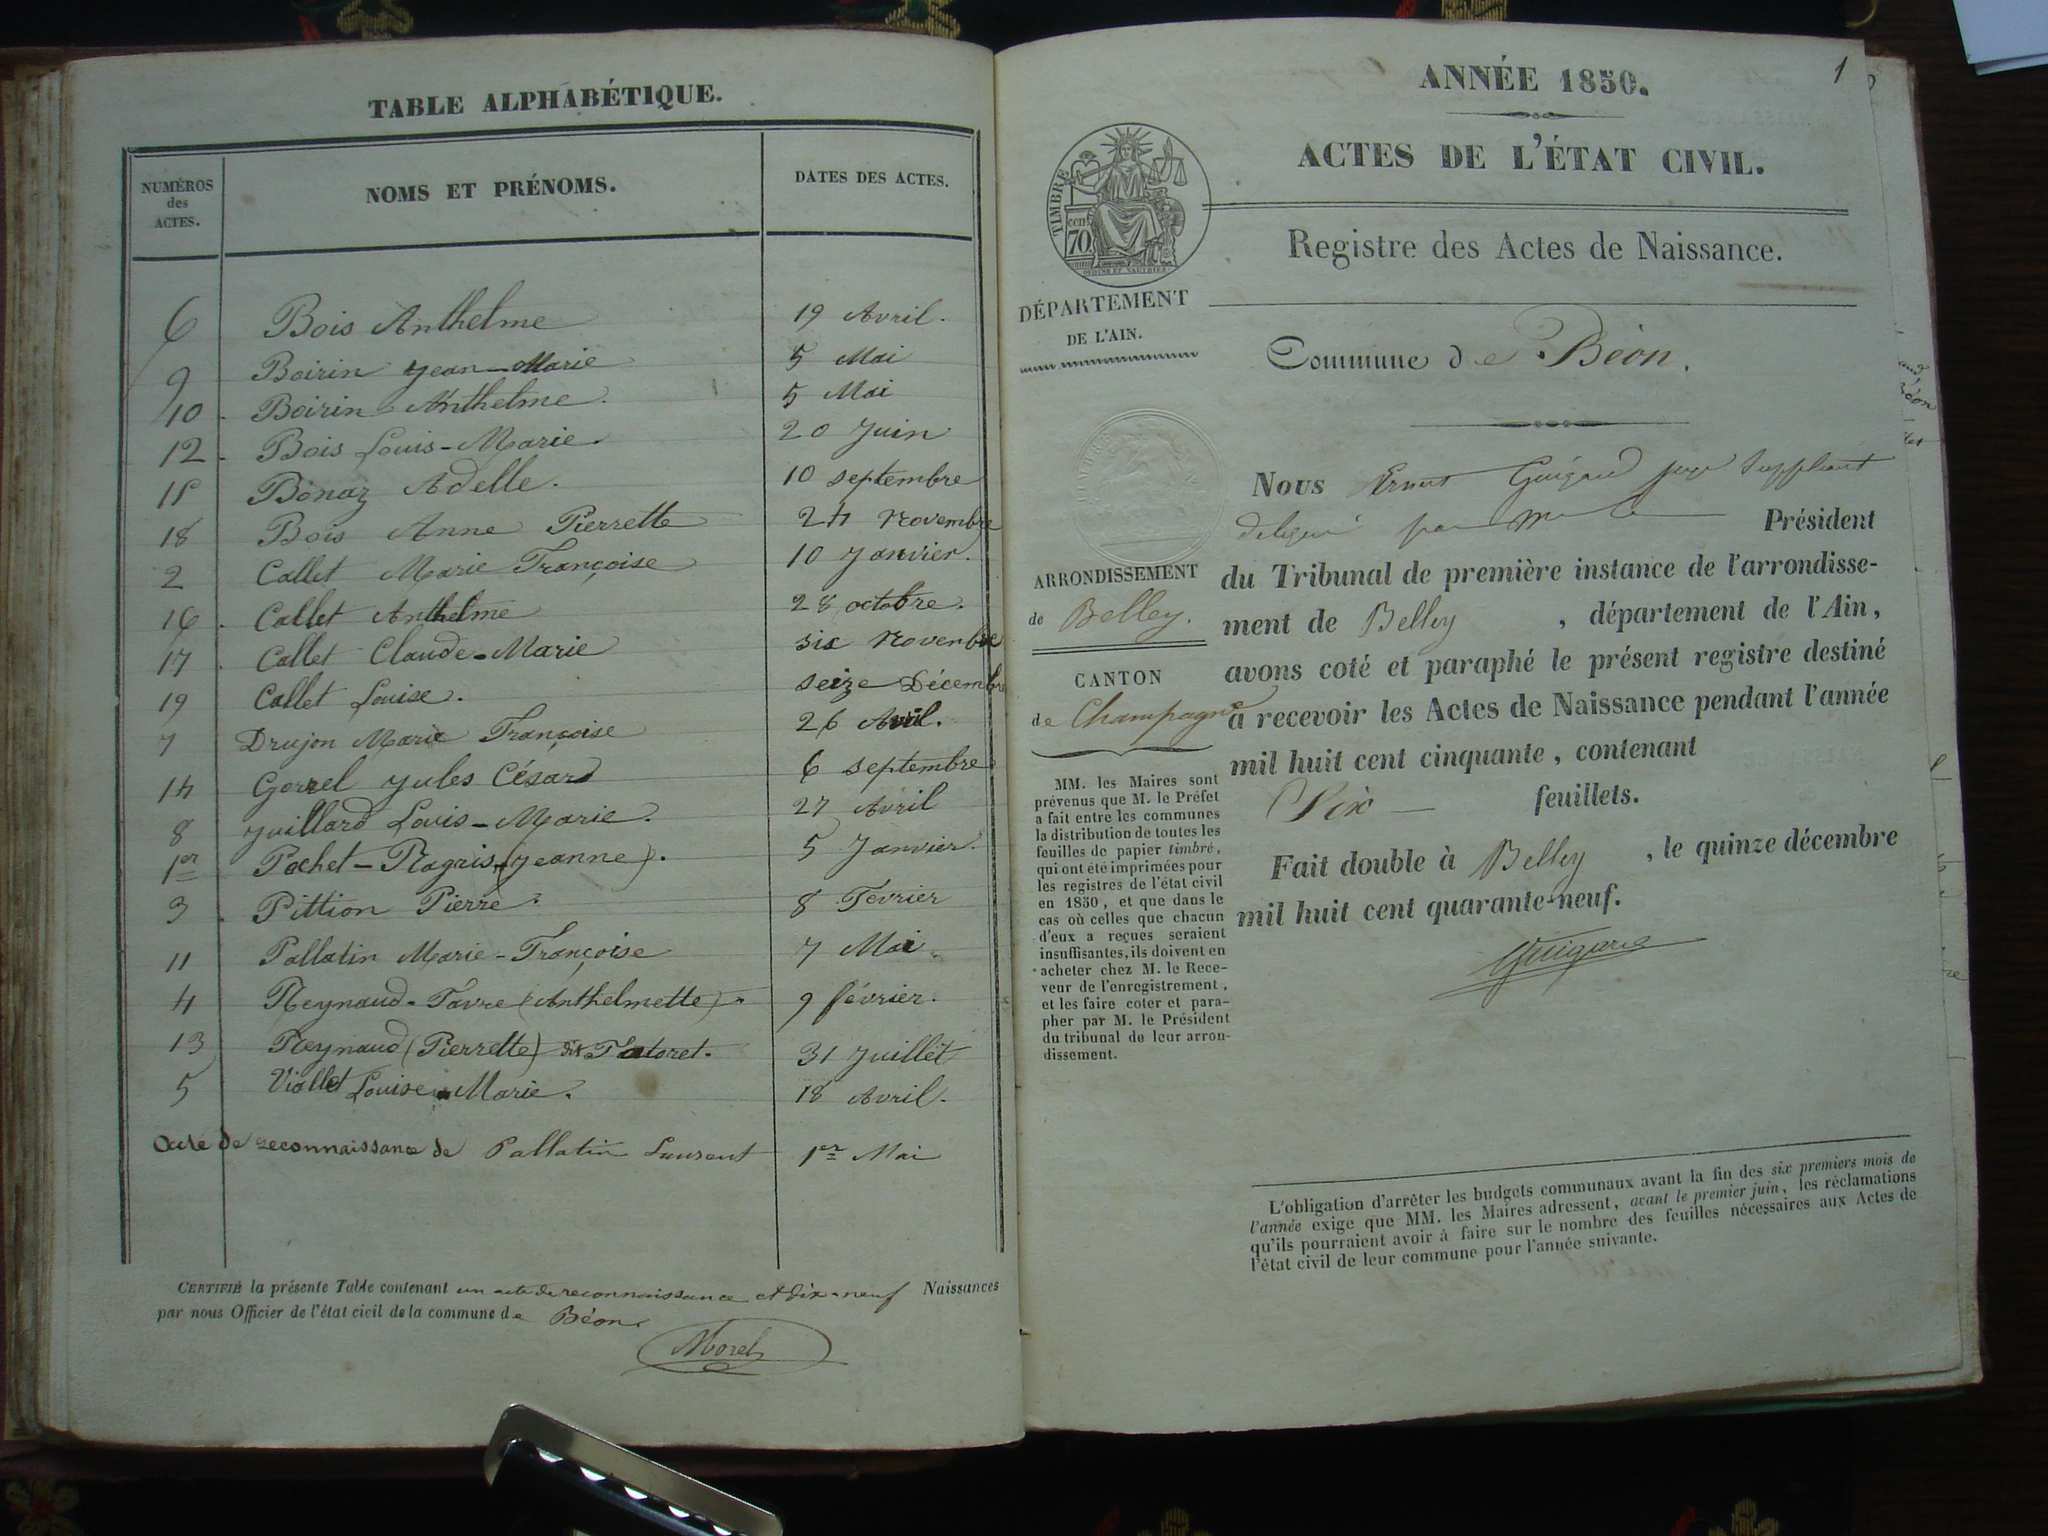 TABLE ALPHABÉTIQUE.
NUMÉROS des ACTES. NOMS ET PRÉNOMS. DATES DES ACTES.
6 Bois Anthelme 19 Avril.
9 Boirin Jean-Marie 5 Mai
10 Boirin Anthelme. 5 Mai
12 Bois Louis-Marie. 20 Juin
15 Bonaz Adelle. 10 septembre
18 Bois Anne Pierrette 24 Novembre
2 Callet Marie Françoise 10 Janvier.
16 Callet Anthelme 28 octobre.
17 Callet Claude-Marie six Novembre
19 Callet Louise. seize Décembre
7 Drujon Marie Françoise 26 Avril.
14 Gorrel Jules César 6 septembre
8 Juillard Louis-Marie. 27 Avril
1er Pochet-Magris (Jeanne). 5 Janvier.
3 Pittion Pierre. 8 Fevrier
11 Pallatin Marie-Françoise 7 Mai
4 Reynaud-Favre (Anthelmette). 9 février.
13 Reynaud (Pierrette) dit 31 Juillet
5 Viollet Louise Marie. 18 Avril.
Acte de reconnaissance de Pallatin Laurent 1er Mai
CERTIFIÉ la présente Table contenant un acte de reconnaissance et dix-neuf Naissances
par nous Officier de l'état civil de la commune de Béon
Morel
1
ANNÉE 1850.
ACTES DE L'ÉTAT CIVIL.
Registre des Actes de Naissance.
TIMBRE
cen
70
DÉPARTEMENT
DE L'AIN.
Commune de Béon.
ARRONDISSEMENT
de Belley.
CANTON
de Champagne
MM. les Maires sont
prévenus que M. le Préfet
a fait entre les communes
la distribution de toutes les
feuilles de papier timbré,
qui ont été imprimées pour
les registres de l'état civil
en 1850, et que dans le
cas où celles que chacun
d'eux a reçues seraient
insuffisantes, ils doivent en
acheter chez M. le Rece-
veur de l'enregistrement,
et les faire coter et para-
pher par M. le Président
du tribunal de leur arron-
dissement.
Nous Ernest Guigard juge Suppléant
délégué par M le Président
du Tribunal de première instance de l'arrondisse-
ment de Belley, département de l'Ain,
avons coté et paraphé le présent registre destiné
à recevoir les Actes de Naissance pendant l'année
mil huit cent cinquante, contenant
Six feuillets.
Fait double à Belley, le quinze décembre
mil huit cent quarante-neuf.
Guigard
L'obligation d'arrêter les budgets communaux avant la fin des six premiers mois de
l'année exige que MM. les Maires adressent, avant le premier juin, les réclamations
qu'ils pourraient avoir à faire sur le nombre des feuilles nécessaires aux Actes de
l'état civil de leur commune pour l'année suivante.